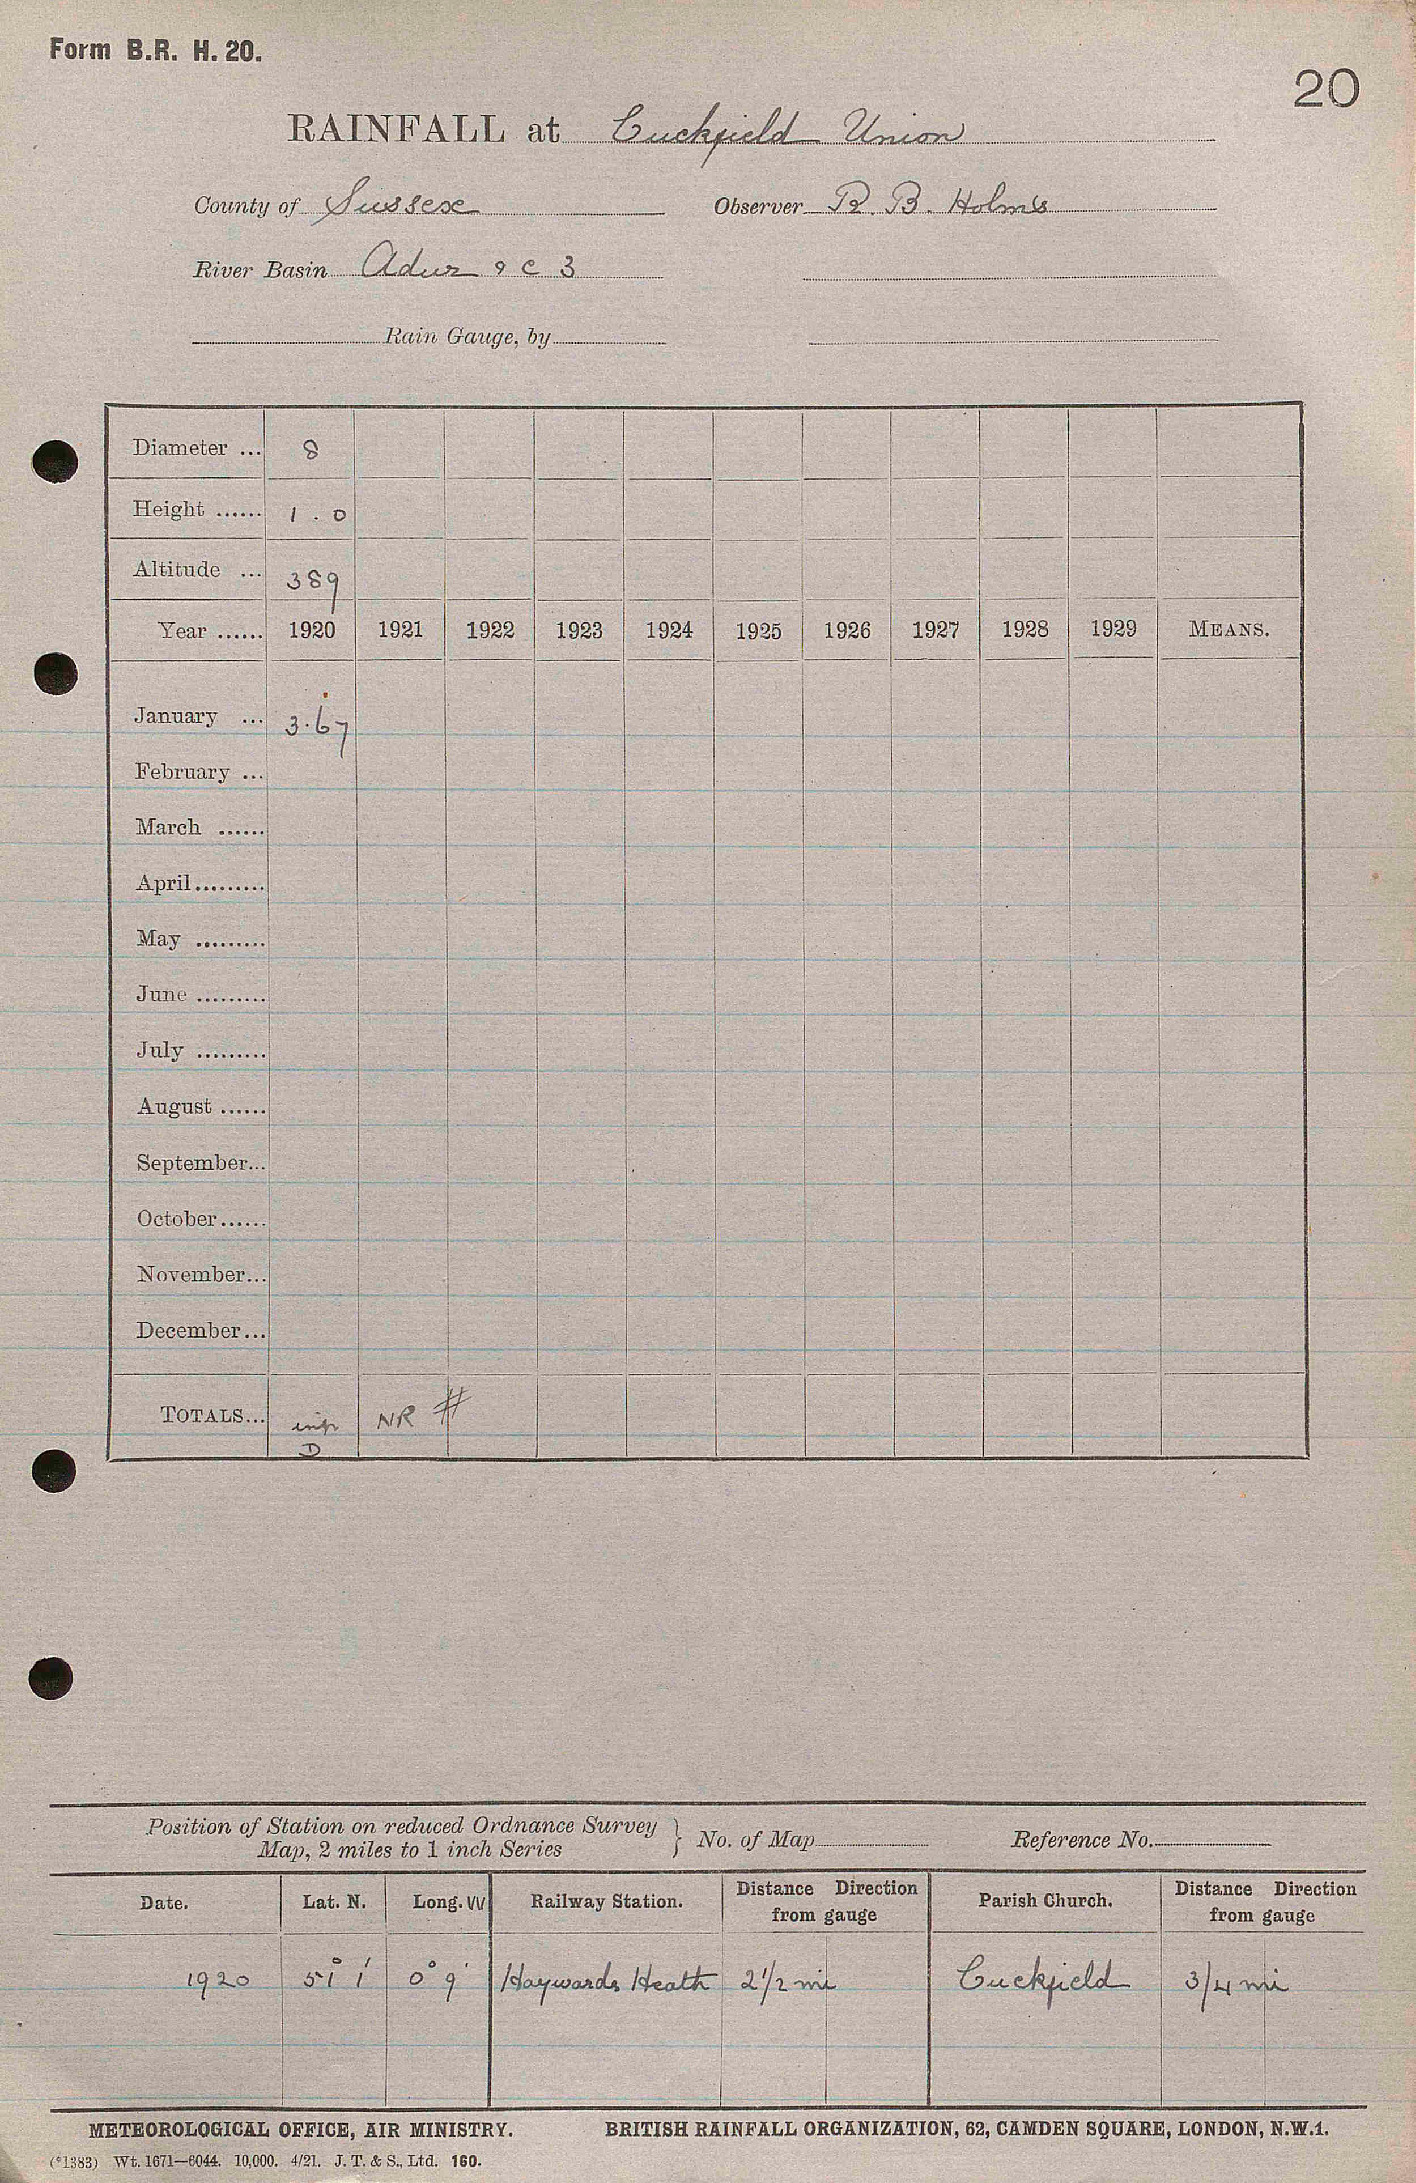 Form B.R. H. 20.
20
RAINFALL at Cuckfield Union
County of Sussex Observer R. B. Holms
River Basin Adur & C 3
Rain Gauge, by
Diameter ... 8
Height ...... 1.0
Altitude ... 389
Year ...... 1920 1921 1922 1923 1924 1925 1926 1927 1928 1929 MEANS.
January ... 3.67
February ...
March ......
April.........
May .........
June .........
July .........
August ......
September...
October......
November...
December...
TOTALS... imp NR #
D
Position of Station on reduced Ordnance Survey
Map, 2 miles to 1 inch Series } No. of Map Reference No.
Date. Lat. N. Long. W Railway Station. Distance Direction from gauge Parish Church. Distance Direction from gauge
1920 51° 1' 0° 9' Haywards Heath 2 1/2 mi Cuckfield 3/4 mi
METEOROLOGICAL OFFICE, AIR MINISTRY. BRITISH RAINFALL ORGANIZATION, 62, CAMDEN SQUARE, LONDON, N.W.1.
(*1383) Wt. 1671—6044. 10,000. 4/21. J. T. & S., Ltd. 160.